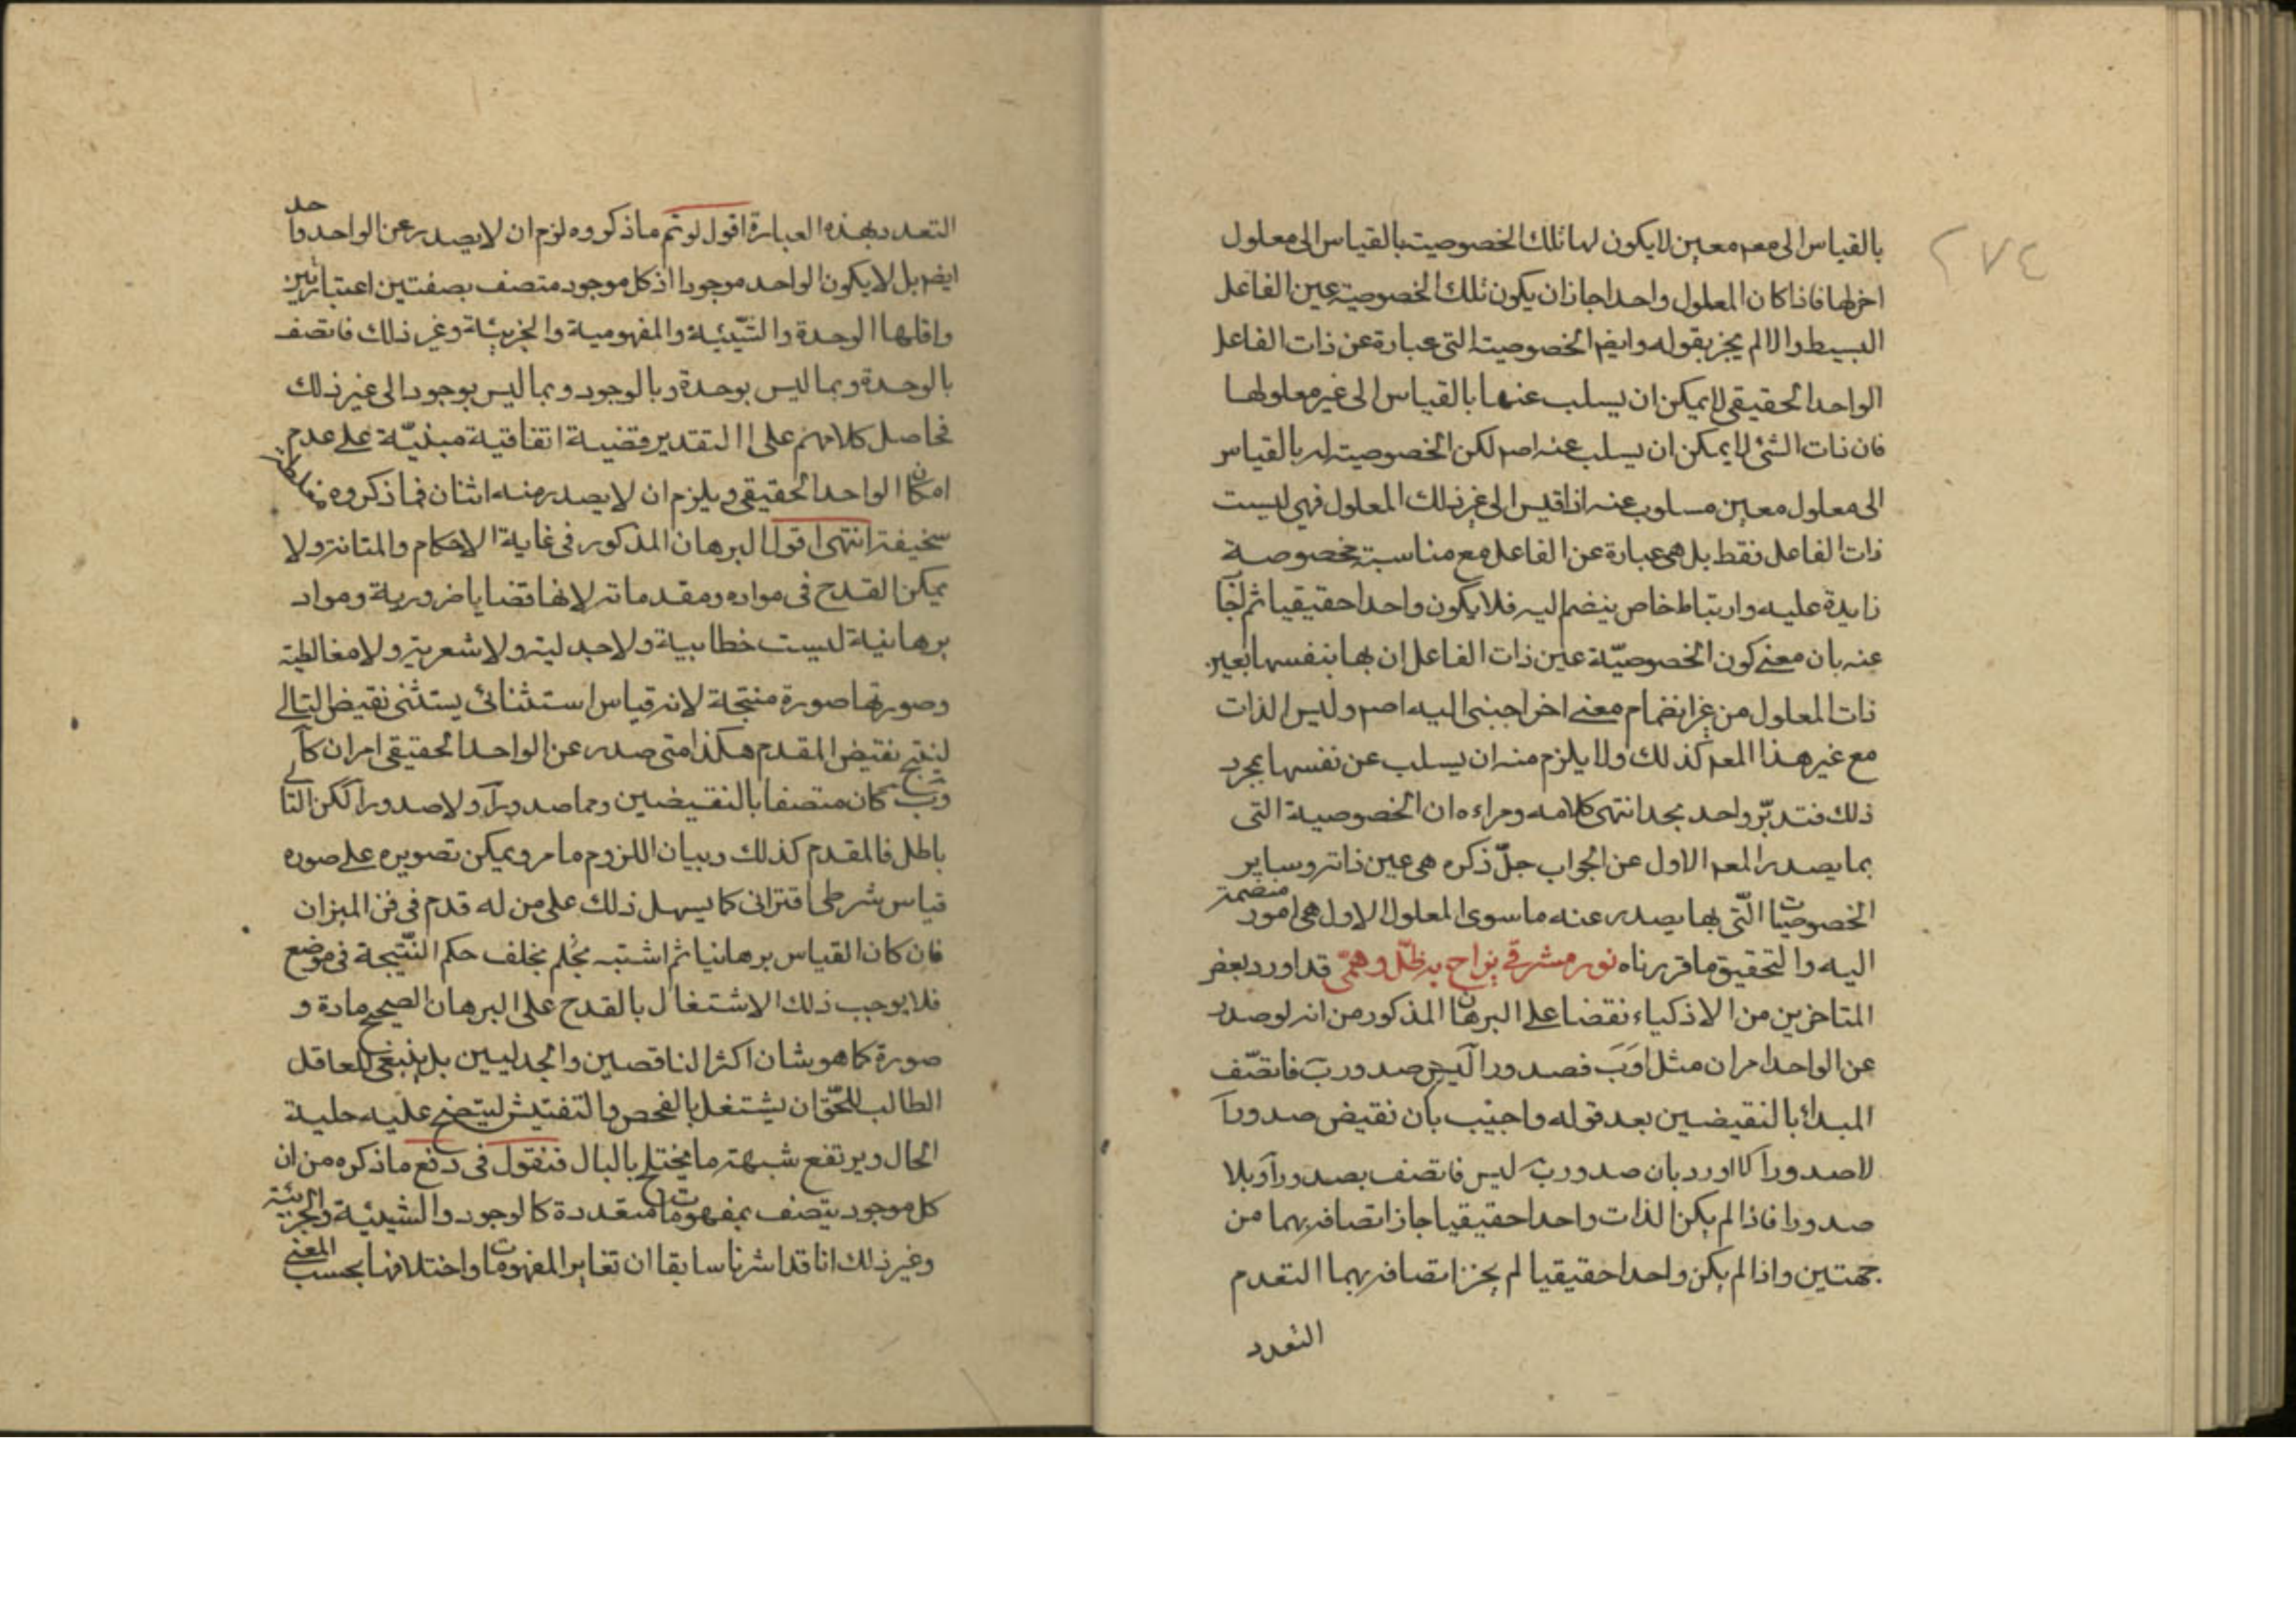 ٢٧٤
بالقياس الى معم معين لا يكون لها تلك الخصوصية بالقياس الى معلول
اخر لها فاذا كان المعلول واحدا جاز ان يكون تلك الخصوصية عين الفاعل
البسيط والا لم يجز بقوله وايض الخصوصية التى عبارة عن ذات الفاعل
الواحد الحقيقى لا يمكن ان يسلب عنها بالقياس الى غير معلولها
فان ذات الشئ لا يمكن ان يسلب عنه اصم لكن الخصوصية له بالقياس
الى معلول معين مسلوب عنه اذا قيس الى غير ذلك المعلول فهى ليست
ذات الفاعل فقط بل هى عبارة عن الفاعل مع مناسبة مخصوصة
زايدة عليه وارتباط خاص ينضم اليه فلا يكون واحدا حقيقيا ثم اجا
عنه بان معنى كون الخصوصيّة عين ذات الفاعل ان بها بنفسها تعين
ذات المعلول من غير انضمام معنى اخر اجنبى اليه اصم وليس الذات
مع غير هذا المعم كذلك ولا يلزم منه ان يسلب عن نفسها بمجرد
ذلك فتدبّر واحد بجد انتهى كلامه ومراده ان الخصوصية التى
بما يصدر المعم الاول عن الجواب جلّ ذكره هى عين ذاته وساير
الخصوصيات الّتى بها يصدر عنه ما سوى المعلول الاول هى امور منضمة
اليه والتحقيق ما قررناه نور مشرقى يزاح به ظلّ وهمّى قد اورد بعض
المتاخرين من الاذكياء نقضا على البرهان المذكور من انه لو صدر
عن الواحد امران مثل ا وَبَ فصدور آ ليس صدور بَ فاتصّف
المبدا بالنقيضين بعد قوله واجيب بان نقيض صدور آ
لا صدور آ كا اورد بان صدور ب ليس فاتصف بصدور آ وبلا
صدور ا فاذا لم يكن الذات واحدا حقيقيا جاز اتصافه بهما من
جهتين واذا لم يكن واحدا حقيقيا لم يجز اتصافه بهما التقدم
التعدد
التعدد بهذه العبارة اقول لو تم ما ذكروه لزم ان لا يصدر عن الواحد واحد
ايضم بل لا يكون الواحد موجودا اذ كل موجود متصف بصفتين اعتباريتين
واقلها الوحدة والشّيئية والمفهومية والجزئية وغير ذلك فاتصف
بالوحدة وبما ليس بوحدة وبالوجود وبما ليس بوجود الى غير ذلك
فحاصل كلامهم على التقدير قضية اتفاقية مبنيّة على عدم
امكان الواحد الحقيقى ويلزم ان لا يصدر منه اثنان فما ذكروه مغلطة
سخيفة انتهى اقول البرهان المذكور فى غاية الاحكام والمتانة ولا
يمكن القدح فى مواده ومقدماته لانها قضايا ضرورية ومواد
برهانية ليست خطابية ولا جدلية ولا شعرية ولا مغالطية
وصورتها صورة منتجة لانه قياس استثنائى يستثنى نقيض التالى
لينتج نقيض المقدم هكذا متى صدر عن الواحد الحقيقى امران كآ
وبَ كان متصفا بالنقيضين وهما صدور آ ولا صدور آ لكن التالى
باطل فالمقدم كذلك وبيان اللزوم ما مر ويمكن تصويره على صوره
قياس شرطى اقترانى كما يسهل ذلك على من له قدم فى فن الميزان
فان كان القياس برهانيا ثم اشتبه تخلف حكم النّتيجة فى موضع
فلا يوجب ذلك الاشتغال بالقدح على البرهان الصحيح مادة و
صورة كما هو شان اكثر الناقصين والجدليين بل ينبغى للعاقل
الطالب للحّق ان يشتغل بالفحص والتفتيش ليتضح عليه حلية
الحال ويرتفع شبهة ما يختلج بالبال فنقول فى دفع ما ذكره من ان
كل موجود يتصف بمفهومات متعددة كالوجود والشيئية والجزئية
وغير ذلك انا قد اشرنا سابقا ان تغاير المفهومات واختلافها بحسب المعنى